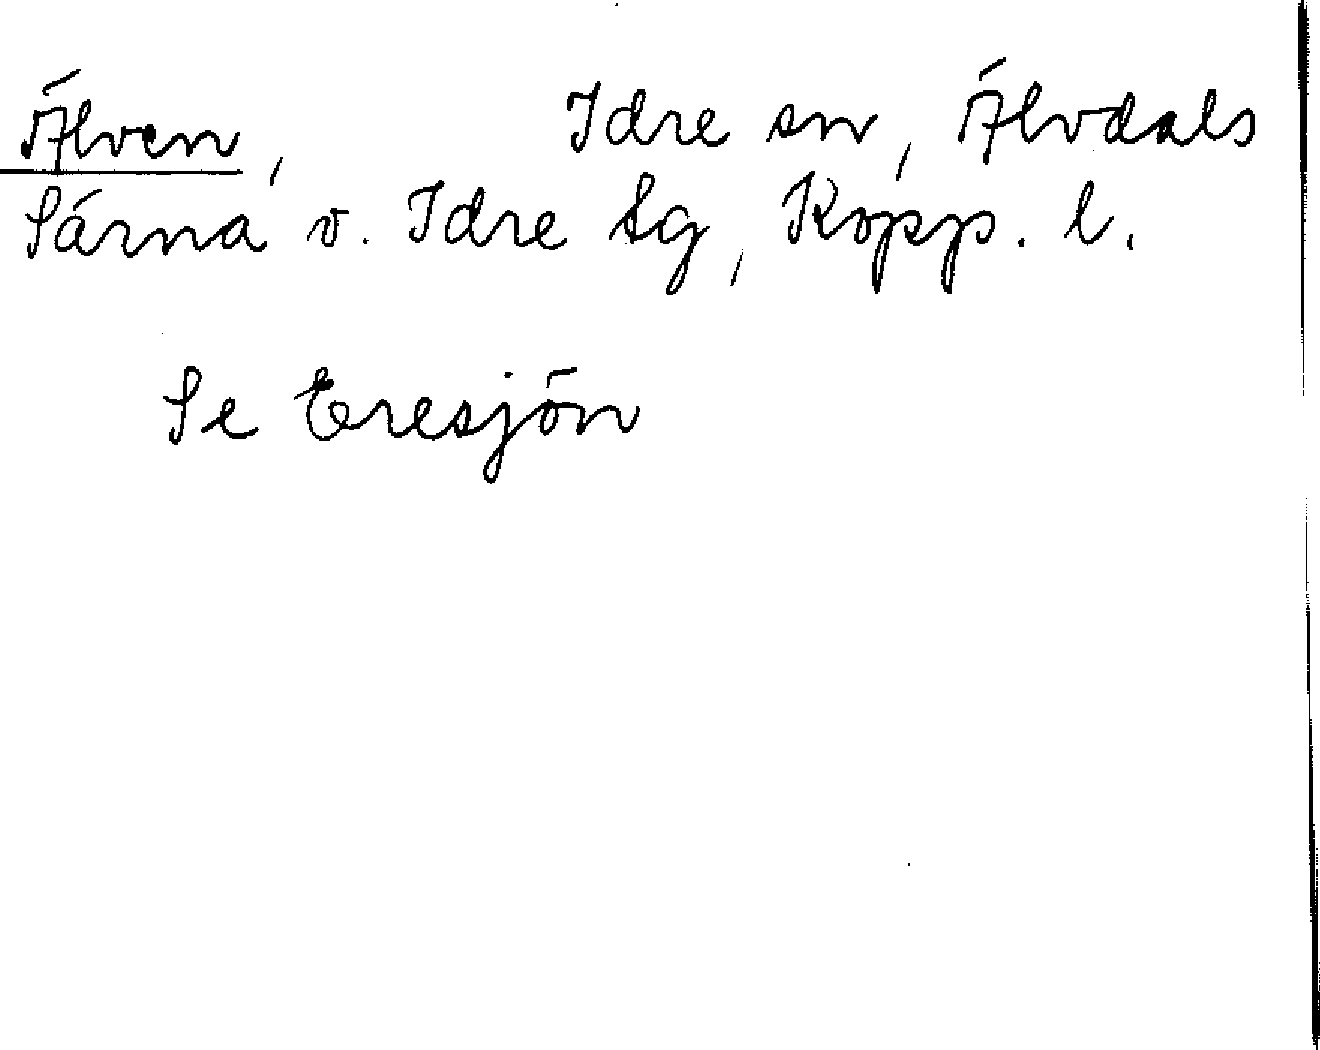 Älven, Idre sn, Älvdals
Särna o. Idre tg, Kopp. l.
Se Eresjön